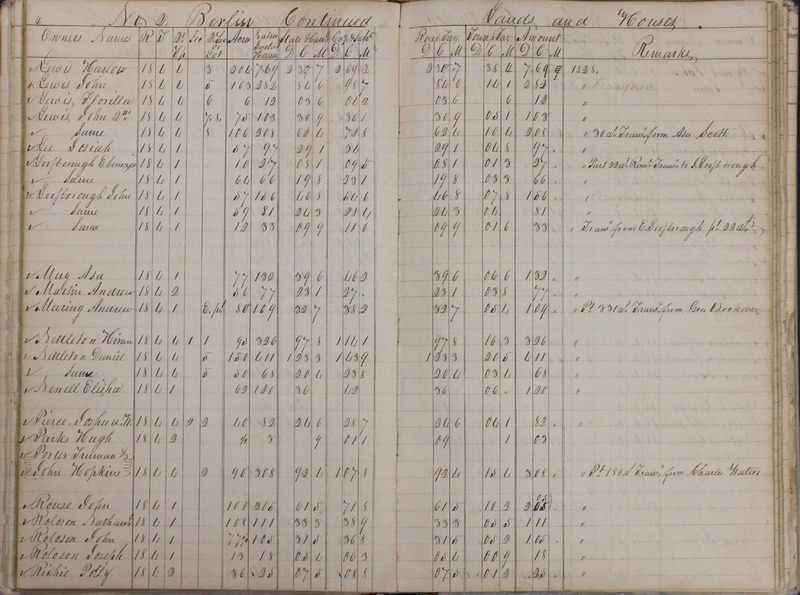 4 No 2, Berlin Continued Lands and Houses
Owners Name R T Sec Lot Acres Value State & Canal Co & School Road Tax Township Amount Remarks
D C M D C M D C M D C M D C M
Lewis Harlow 18 4 4 3 204 769 2 30 7 2 69 2 2 30 7 38 4 7 69 1828.
Lewis John 18 4 4 5 103 282 84 6 98 7 84 6 14 1 2 82 "
Lewis, Florilla 18 4 4 6 6 12 03 6 04 2 03 6 6 12 "
Lewis, John 2nd 18 4 4 7 8 75 103 30 9 36 1 30 9 05 1 1 03 "
" Same 18 4 4 8 106 208 62 4 72 8 62 4 10 4 2 08 " 30 as Trans. from Asa Scott
Lee Josiah 18 4 1 57 97 29 1 34 29 1 04 8 97 "
Ebenezer 18 4 1 10 27 08 1 09 5 08 1 01 3 27
" Same 18 4 1 64 66 19 8 23 1 19 8 03 3 66 "
John 18 4 1 57 156 46 8 54 6 46 8 07 8 1 56 "
" Same 18 4 1 59 81 24 3 28 4 24 3 04 81 "
" Same 18 4 1 12 33 09 9 11 6 09 9 01 6 33 " Trans. from E.
May Asa 18 4 1 77 132 39 6 46 2 39 6 06 6 1 32 "
Martin Andrew 18 4 2 56 77 23 1 27 23 1 03 8 77 "
Maring Andrew 18 4 1 E. pt. 80 109 32 7 38 2 32 7 05 4 1 09 " Pt 33 as. Trans. from Geo
Nettleton Hiram 18 4 4 1 95 326 97 8 1 14 1 97 8 16 3 3 26 "
Nettleton Daniel 18 4 4 5 150 411 1 23 3 1 43 9 1 23 3 20 5 4 11 "
" Same 18 4 4 5 50 68 20 4 23 8 20 4 03 4 68 "
Newell Elisha 18 4 1 62 120 36 42 36 06 1 20 "
Pierce Joshua 18 4 4 2 2 40 82 24 6 28 7 24 6 04 1 82 "
Parks Hugh 18 4 2 3 9 01 1 09 1 03 "
Porter Truman &
John Hopkins 18 4 4 2 90 308 92 4 1 07 8 92 4 15 4 3 08 " Pt 186 as. Trans. from Charles Waters
Rouse John 18 4 1 100 205 61 5 71 8 61 5 10 2 2 05 "
Roloson Nathan 18 4 1 108 111 33 3 38 9 33 3 05 5 1 11 "
Roloson John 18 4 1 105 31 5 36 8 31 5 05 2 1 05 "
Roloson Joseph 18 4 1 13 18 05 4 06 3 05 4 00 9 18 "
Richie Polly 18 4 2 36 25 07 5 08 8 07 5 01 2 25 "